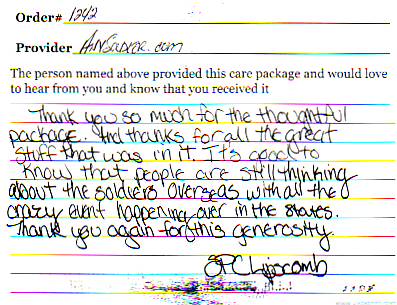 Order# 1242
Provider AnySoldier.com
The person named above provided this care package and would love
to hear from you and know that you received it
Thank you so much for the thoughtful
package. And thanks for all the great
stuff that was in it. It's good to
know that people are still thinking
about the soldiers overseas with all the
crazy event happening over in the states.
Thank you again for this generosity.
SPC Lipscomb